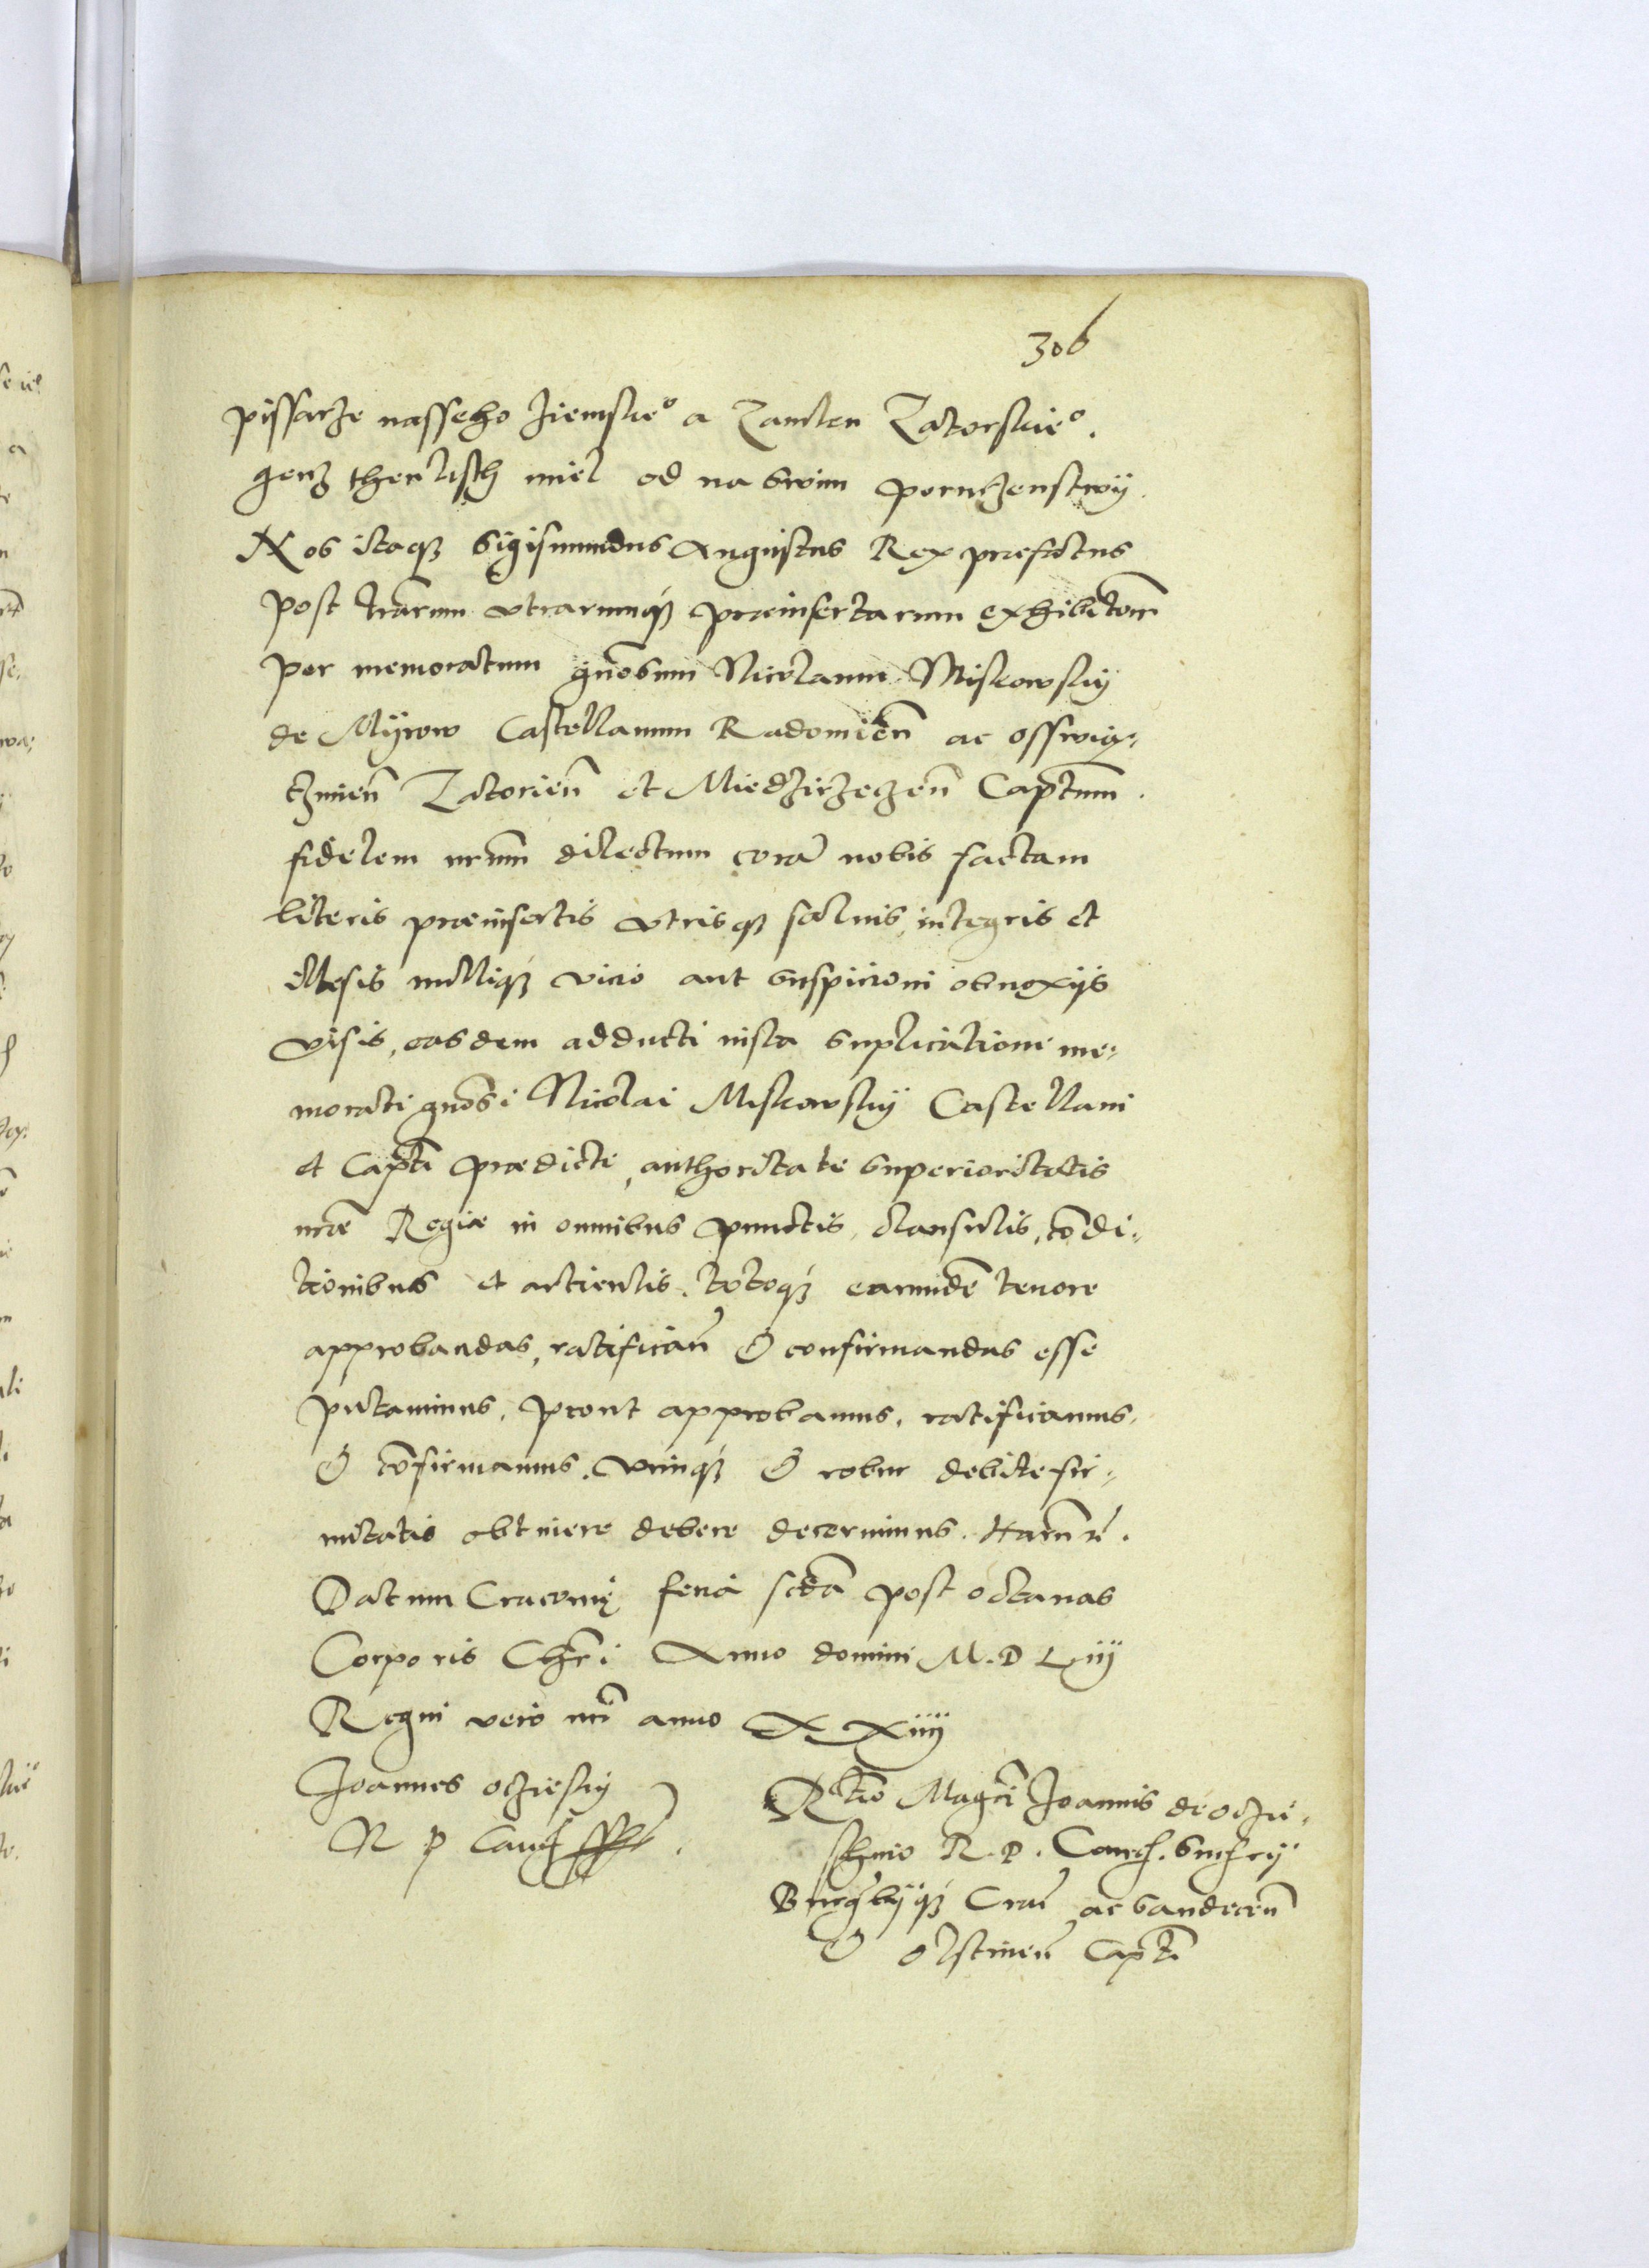 306
pissarze nasseho ziemskeº a Zamku Zatorskieº.
genz then listh miel od nas swim porucżenstwij
Nos itaqꝫ Sigismundus Augustus Rex præfatus
post lrarum vtrarumqꝫ præinsertarum exhibitom̃
per memoratum gñosum Nicolaum Miskowskij
de Mÿrow Castellanum Radomień ac osswię¬
tzmień Zatorień et Miedzirzeczeń Captum.
fidelem nrum dilectum corã nobis factam
literis præinsertis vtrisqꝫ saluis, integris et
illesis nulliqꝫ vicio aut suspicioni obnoxijs
visis, easdem adducti iusta suplicatione me¬
morati gñosi Nicolai Miskowskij Castellani
et Capti prædicti, authoritate superioritatis
nræ Regiæ in omnibus punctis, clausulis, cõdi¬
tionibus et articulis. totoqꝫ earundẽ tenore
approbandas, ratificań & confirmandas esse
putauimus, prout approbamus, ratificamus,
& cõfirmamus. vimqꝫ & robur debite fir¬
mitatis obtinere debere decernimus. Harũ r̃.
Datum Cracouię feria scdã post octauas
Corporis Chri Anno domini M. D Liij
Regni vero nri anno XXiiij
Joannes oczieskij
R P Canc̃ ssst
Rtio Magci Joannis de oczie¬
schino R. P. Canc̃. supr̃ij
Burgrbijqꝫ Crac̃ ac sandeceń
& olstineń Capti